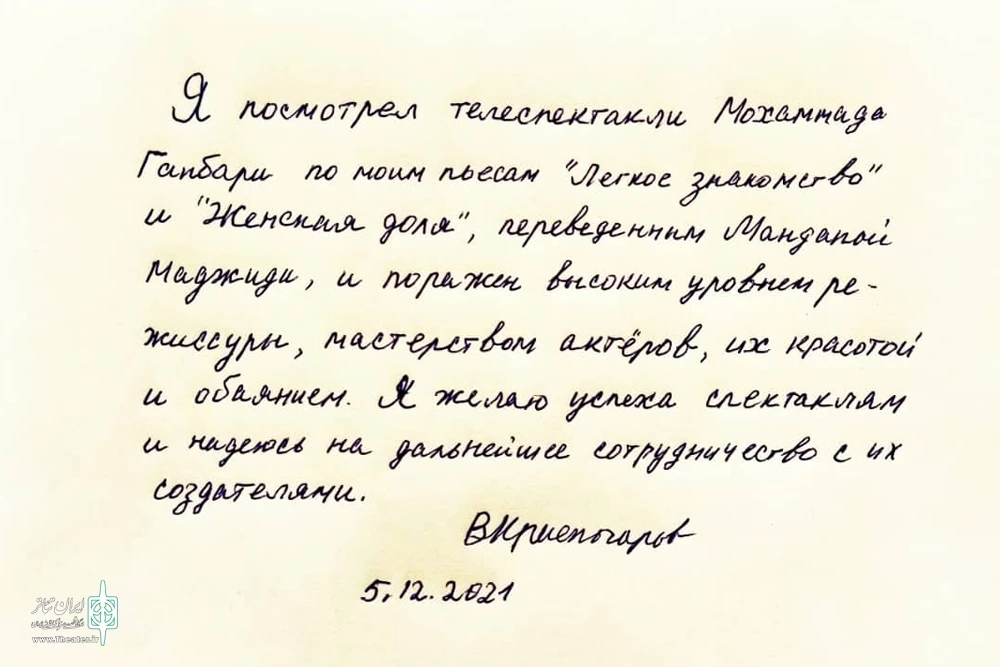 Я посмотрел телеспектакли Мохаммада
Ганбари по моим пьесам "Легкое знакомство"
и "Женская доля", переведенным Манданой
Маджиди, и поражен высоким уровнем ре-
жиссуры, мастерством актёров, их красотой
и обаянием. Я желаю успеха спектаклям
и надеюсь на дальнейшее сотрудничество с их
создателями.
В Красногоров
5.12.2021
ایران تئاتر
www.Theater.ir